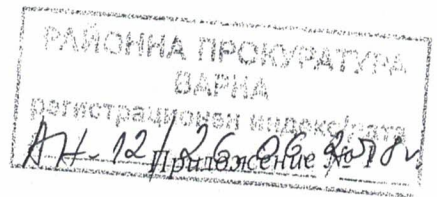 РАЙОННА ПРОКУРАТУРА
ВАРНА
регистрационен индекс/дата
АН. 12 / 26. 06. 2018г.
Приложение №